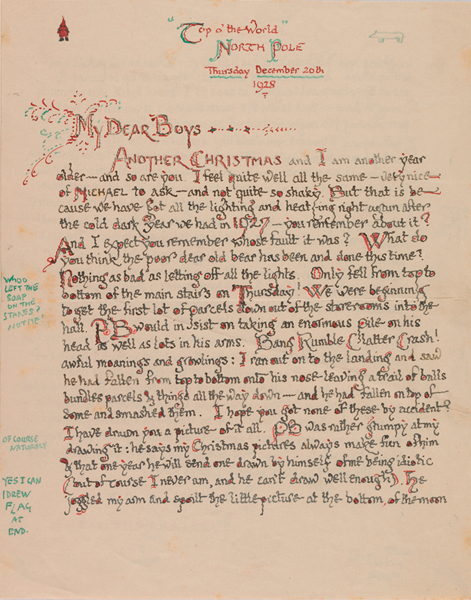 "Top o' the World"
NORTH POLE
Thursday December 20th
1928
MY DEAR BOYS
ANOTHER CHRISTMAS and I am another year
older — and so are you. I feel quite well all the same — very nice
of MICHAEL to ask — and not quite so shaky. But that is be-
cause we have got all the lighting and heating right again after
the cold dark year we had in 1927 — you remember about it?
And I expect you remember whose fault it was? What do
you think the poor dear old bear has been and done this time?
Nothing as bad as letting off all the lights. Only fell from top to
bottom of the main stairs on Thursday! We were beginning
to get the first lot of parcels down out of the storerooms into the
hall. P.B. would insist on taking an enormous pile on his
head as well as lots in his arms. Bang Rumble Clatter Crash!
awful moanings and growlings: I ran out on to the landing and saw
he had fallen from top to bottom onto his nose leaving a trail of balls
bundles parcels & things all the way down — and he had fallen on top of
some and smashed them. I hope you got none of these by accident?
I have drawn you a picture of it all. P.B. was rather grumpy at my
drawing it: he says my Christmas pictures always make fun of him
& that one year he will send one drawn by himself of me being idiotic
(but of course I never am, and he can't draw well enough). He
joggled my arm and spoilt the little picture at the bottom, of the moon
WHOO
LEFT THE
SOAP
ON THE
STARES?
NOT ME!
OF COURSE
NATURALY
YES I CAN
I DREW
FLAG
AT
END.